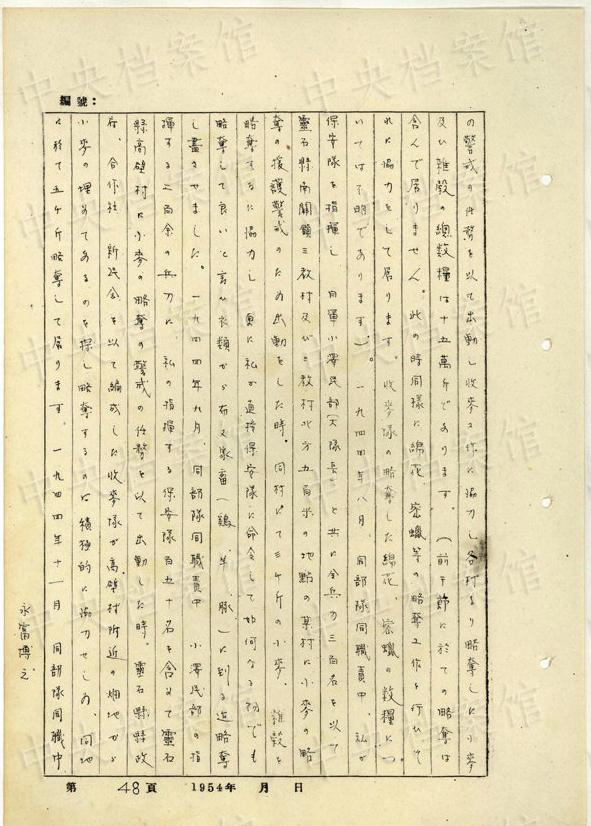 編號：
の警戒の任務を以て出動し收麥工作に協力し各村より略奪した小麥
及び雜穀の總数糧は十五萬斤であります。（前于節に於ての略奪は
含んで居りません。此の時同様に綿花、密蠟等の略奪工作を行ひそ
れに協力をして居ります。收麥隊の略奪した綿花、密蠟の数糧につ
いては不明であります）。一九四四年八月、同部隊同職責中、私が
保安隊を指揮し、日軍小澤民部（大隊長）と共に全兵力三百名を以て
靈石縣南關鎮三教村及び三教村北方五百米の地點の某村に小麥の略
奪の援護警戒のため出動をした時。同村にて三千斤の小麥、雜穀を
略奪するに協力し、更に私が直接保安隊に命令して如何なる物でも
略奪して良いと言ひ衣類から布又家畜（鷄、羊、豚）に到る迄略奪
し盡させました。一九四四年九月、同部隊同職責中、小澤民部の指
揮する二百余の兵力に、私の指揮する保安隊百五十名を含めて靈石
縣高壁村に小麥の略奪の警戒の任務を以て出動した時。靈石縣縣政
府、合作社、新民会を以て編成した收麥隊が高壁村附近の畑地から
小麥の埋めてあるのを探し略奪するのに積極的に協力せしめ、同地
に於て五千斤略奪して居ります。一九四四年十一月、同部隊同職中
永富博之
第 48 頁 1954年 月 日
中央档案馆